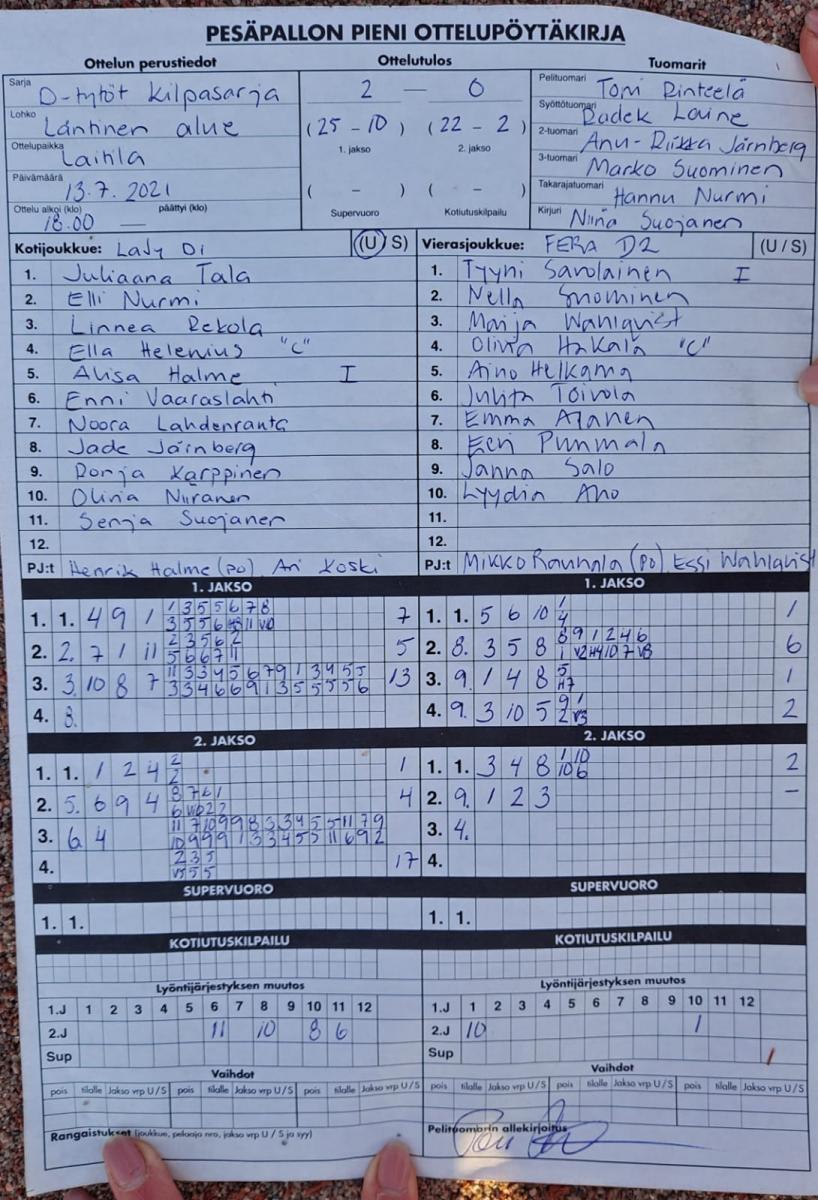 PESÄPALLON PIENI OTTELUPÖYTÄKIRJA
Ottelun perustiedot Ottelutulos Tuomarit
Sarja D-tytöt kilpasarja
Lohko Läntinen alue
Ottelupaikka Laitila
Päivämäärä 13.7.2021
Ottelu alkoi (klo) 18.00 — päättyi (klo)
2 — 0
(25 - 10) (22 - 2)
1. jakso 2. jakso
( - ) ( - )
Supervuoro Kotiutuskilpailu
Pelituomari Tomi Rinteelä
Syöttötuomari Radek Laine
2-tuomari Anu-Riikka Järnberg
3-tuomari Marko Suominen
Takarajatuomari Hannu Nurmi
Kirjuri Niina Suojanen
Kotijoukkue: Lady Di (U/S)
1. Juliaana Tala
2. Elli Nurmi
3. Linnea Rekola
4. Ella Helenius "C"
5. Alisa Halme I
6. Enni Vaaraslahti
7. Noora Lahdenranta
8. Jade Järnberg
9. Ronja Karppinen
10. Olivia Niiranen
11. Senja Suojanen
12.
PJ:t Henrik Halme (PO) Ari Koski
Vierasjoukkue: FERA D2 (U/S)
1. Tyyni Savolainen I
2. Nella Suominen
3. Marja Wahlqvist
4. Olivia Hakala "C"
5. Aino Helkama
6. Julia Toivola
7. Emma Ajanen
8. Eeri Punmala
9. Janna Salo
10. Lyydia Aho
11.
12.
PJ:t Mikko Rauhala (PO) Essi Wahlqvist
1. JAKSO
1. 1. 4 9 1 1 3 5 5 6 7 8 7
2. 2. 7 1 11 2 3 5 6 2 5
5 6 6 7 11
3. 3. 10 8 7 11 3 3 4 5 6 7 9 1 3 4 5 5 13
3 3 4 6 6 9 1 3 5 5 5 5 6
4. 8.
1. JAKSO
1. 1. 5 6 10 1 1
4
2. 8. 3 5 8 8 9 1 2 4 6 6
1 V2 H4 10 7 V8
3. 9. 1 4 8 5 1
H7
4. 9. 3 10 5 9 1 2
2 V3
2. JAKSO
1. 1. 1 2 4 2 1
2
2. 5. 6 9 4 8 7 6 1 4
3. 6. 4 11 7 10 9 9 8 3 3 4 5 5 11 7 9
10 9 9 9 1 3 3 4 5 5 11 6 9 2
4. 2 3 5 17
V5 5 5
2. JAKSO
1. 1. 3 4 8 1 10 2
10 6
2. 9. 1 2 3 –
3. 4.
4.
SUPERVUORO
1. 1.
SUPERVUORO
1. 1.
KOTIUTUSKILPAILU
KOTIUTUSKILPAILU
Lyöntijärjestyksen muutos
1.J 1 2 3 4 5 6 7 8 9 10 11 12
2.J 11 10 8 6
Sup
Lyöntijärjestyksen muutos
1.J 1 2 3 4 5 6 7 8 9 10 11 12
2.J 10 1
Sup
Vaihdot
pois tilalle Jakso vrp U/S pois tilalle Jakso vrp U/S pois tilalle Jakso vrp U/S
Vaihdot
pois tilalle Jakso vrp U/S pois tilalle Jakso vrp U/S pois tilalle Jakso vrp U/S
Rangaistukset (joukkue, pelaaja nro, jakso vrp U / S ja syy)
Pelituomarin allekirjoitus